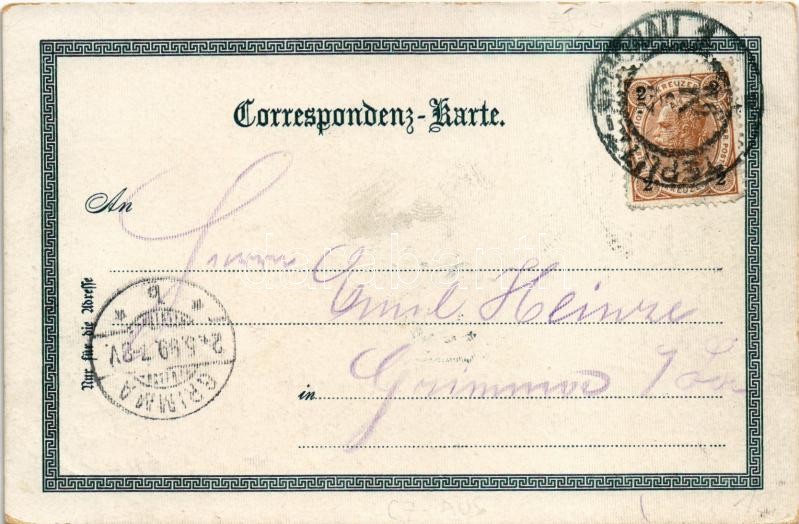 Correspondenz-Karte.
2 KREUZER 2
2 KREUZER 2
SCHÖNAU
TEPLITZ
An
Herrn
Emil Heinze
in Grimma
Nur für die Adresse
24.5.99.7-8V
GRIMMA